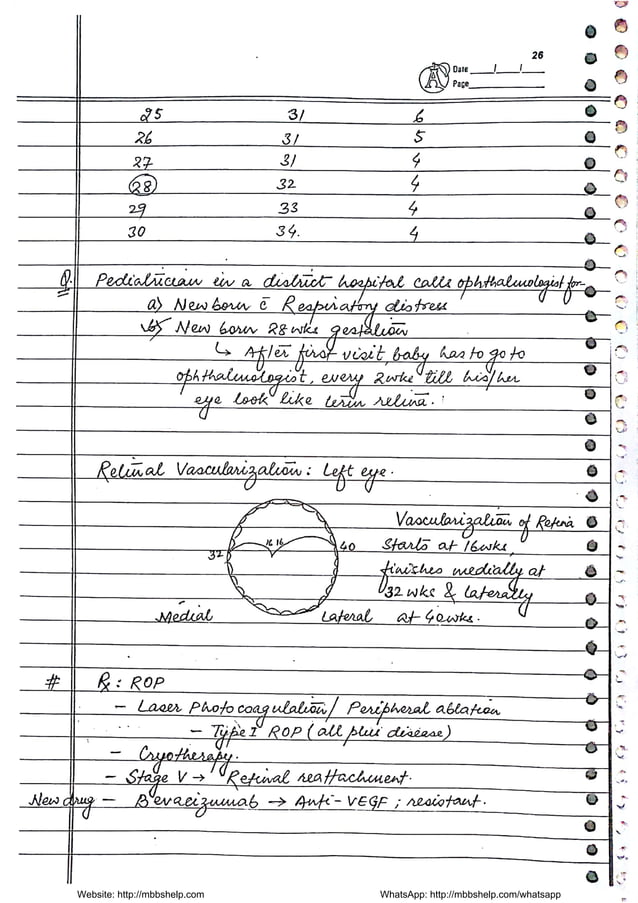 26
Date ___/___/___
Page
25 31 6
26 31 5
27 31 4
28 32 4
29 33 4
30 34. 4
Q. Pediatrician in a district hospital calls ophthalmologist for-
a) New born c̄ Respiratory distress
b) New born 28 wks gestation
↳ After first visit, baby has to go to
ophthalmologist, every 2wks till his/her
eye look like term retina.
Retinal Vascularization: Left eye.
Vascularization of Retina
32 16 16 40 Starts at 16wks,
finishes medially at
32 wks & laterally
Medial Lateral at 40wks.
# Rx: ROP
- Laser Photocoagulation/ Peripheral ablation
- Type I ROP (all plus disease)
- Cryotherapy.
- Stage V → Retinal reattachment.
New drug - Bevacizumab → Anti-VEGF ; resistant.
Website: http://mbbshelp.com WhatsApp: http://mbbshelp.com/whatsapp